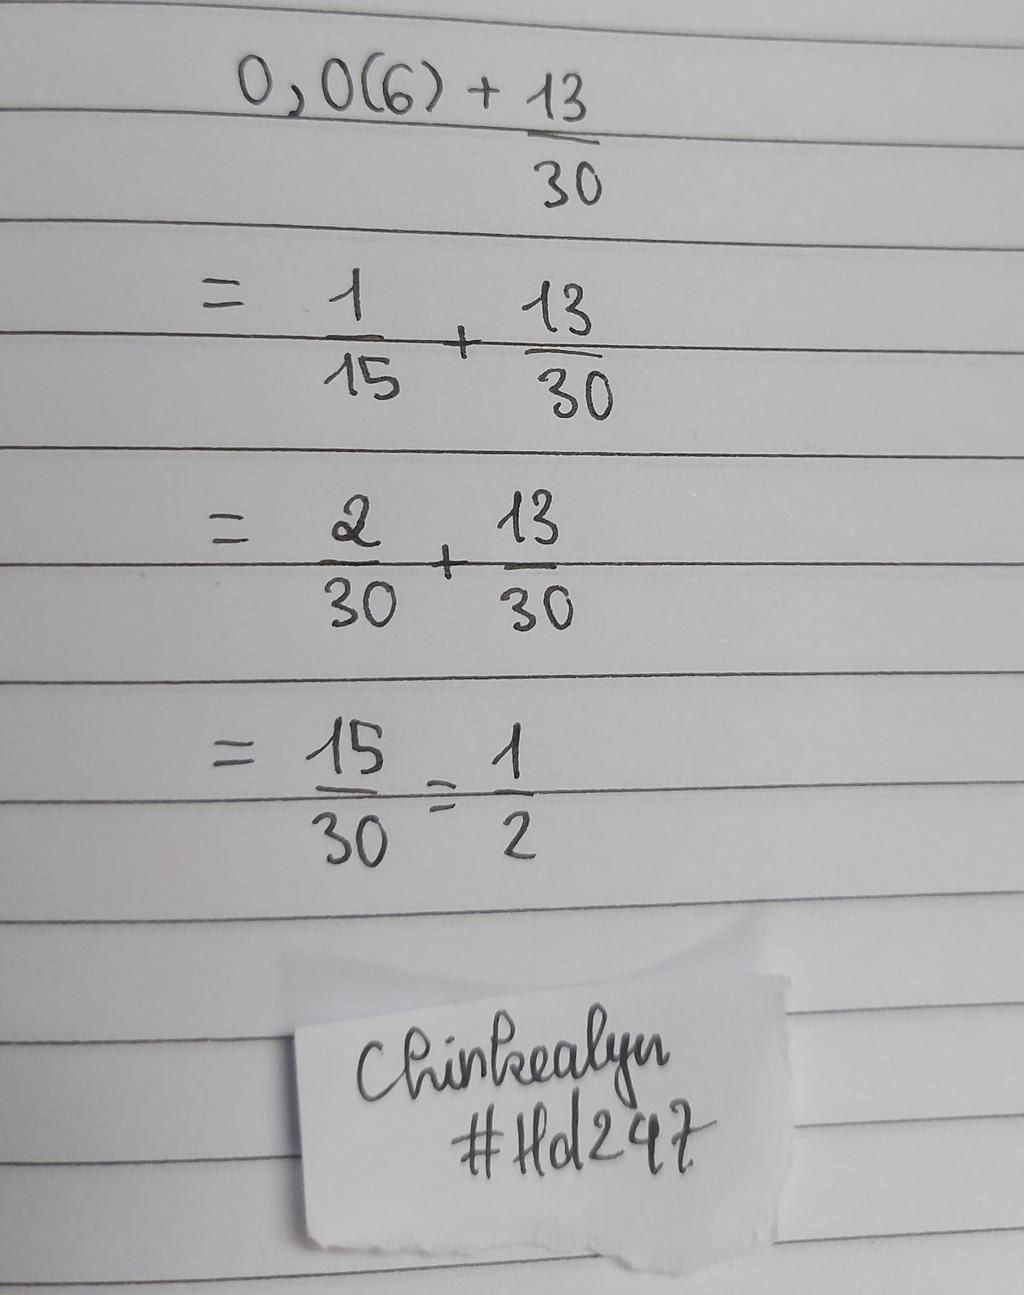 0,0(6) + 13/30
= 1/15 + 13/30
= 2/30 + 13/30
= 15/30 = 1/2
Chinkealyn
#Hd247